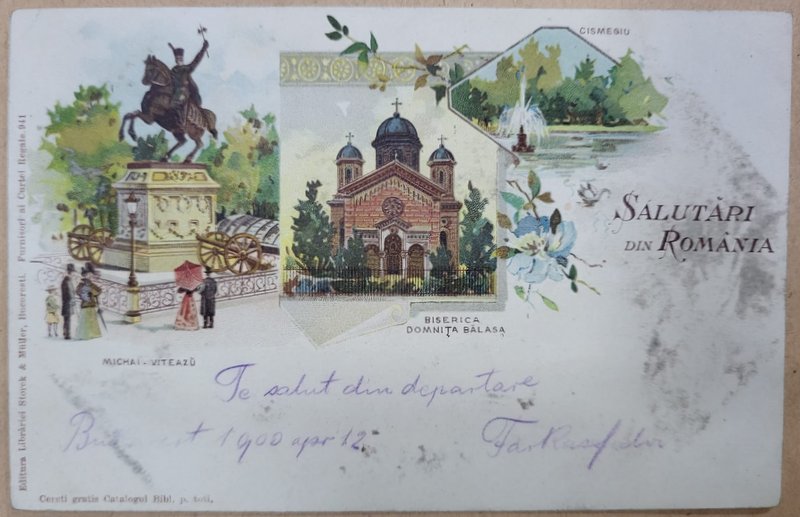 CISMEGIU
SALUTĂRI
DIN ROMÂNIA
BISERICA
DOMNIȚA BĂLAȘA
MICHAI-VITEAZŬ
Te salut din departare
1900 apr 12
Editura Librăriei Storck & Müller, Bucuresti. Furnisori ai Curtei Regale. 941
Cereți gratis Catalogul Bibl. p. toti.